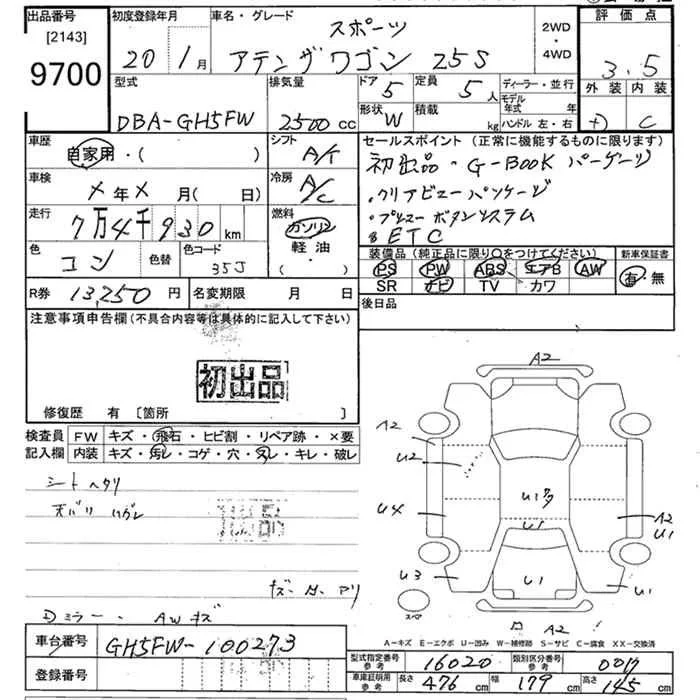 出品番号 初度登録年月 車名・グレード スポーツ 2WD 評価点
[2143] 20年 1月 アテンザワゴン 25S ・4WD 3.5
9700 型式 排気量 ドア 5 定員 5人 ディーラー・並行 外装 内装
DBA-GH5FW 2500cc 形状 W 積載 kg モデル年式 年 ハンドル 左・右 D C
車歴 自家用・( ) シフト A/T セールスポイント (正常に機能するものに限ります)
初出品・G-BOOK パーゲージ
車検 X年X月( 日) 冷房 A/C ・クリアビューパッケージ
走行 7万4千930km 燃料 ガソリン ・プッシュボタンシステム
軽油・( ) ETC
色 コン 色替 色コード 35J 装備品 (純正品に限り○をつけてください) 新車保証書
PS PW ABS エアB AW 有・無
R券 13,250円 名変期限 月 日 SR ナビ TV カワ
注意事項申告欄 (不具合内容等は具体的に記入して下さい) 後日品
初出品
修復歴 有 [箇所 ]
検査員 FW キズ・飛石・ヒビ割・リペア跡・×要
記入欄 内装 キズ・汚レ・コゲ・穴・スレ・キレ・破レ
シートヘタリ
天バリ ハガレ
キズ・凹・アリ
Dミラー・AWキズ
A2
A2
U2
U4
U3
U1
U1
A2
U1
U1
スペア
A2
A-キズ E-エクボ U-凹み W-補修跡 S-サビ C-腐食 XX-交換済
車台番号 GH5FW-100273
型式指定番号 参考 16020 類別区分番号 参考 0017
登録番号 車庫証明用 参考 長さ 476cm 幅 179cm 高さ 145cm